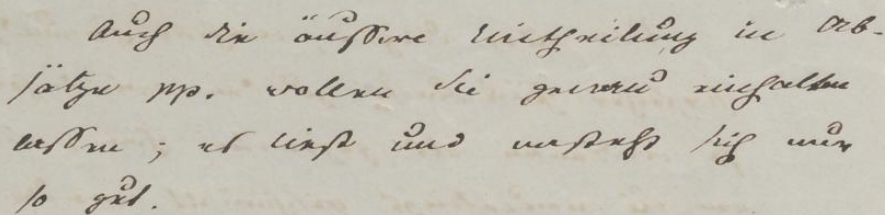 Auch die äussere Eintheilung in Ab-
sätze pp. wollen Sie genau einhalten
lassen; es liest und versteht sich nur
so gut.